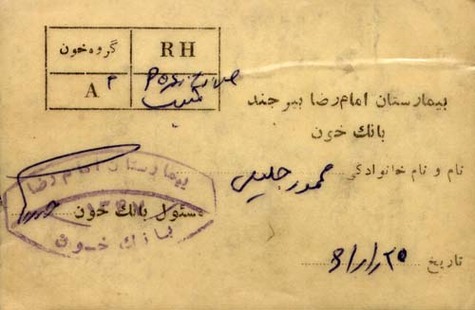 گروه خون RH
A Positive مثبت
بیمارستان امام رضا بیرجند
بانک خون
نام و نام خانوادگی محمود جلیلی
بیمارستان امام رضا
مسئول بانک خون
بانک خون
تاریخ